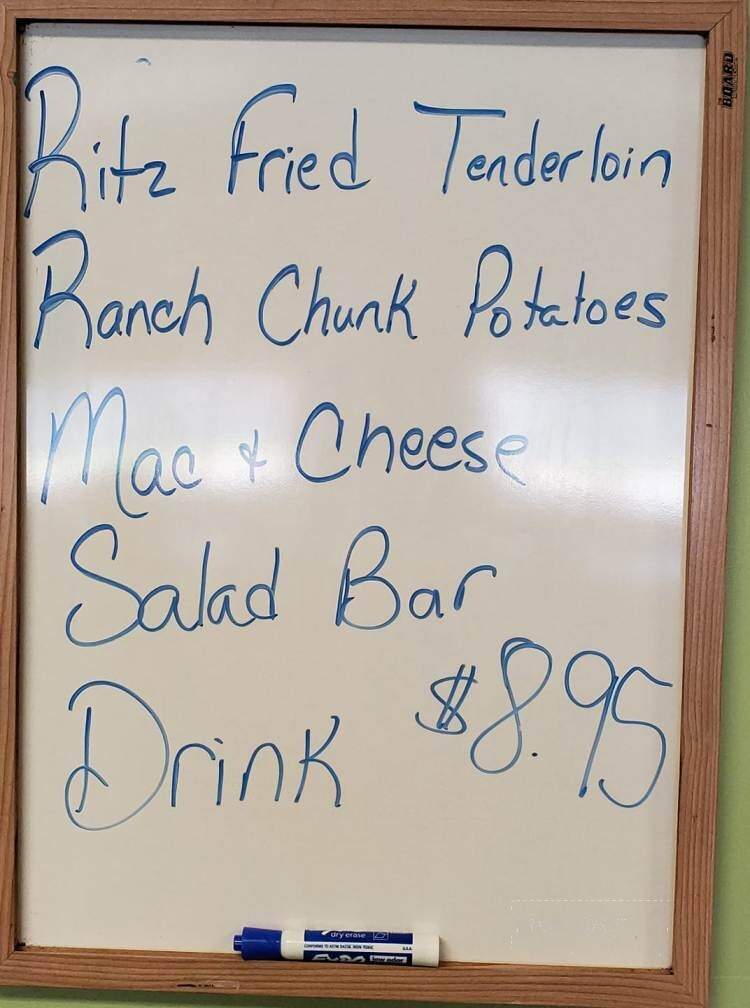 BOARD
Ritz Fried Tenderloin
Ranch Chunk Potatoes
Mac & Cheese
Salad Bar
Drink $8.95
dry erase
EXPO low odor